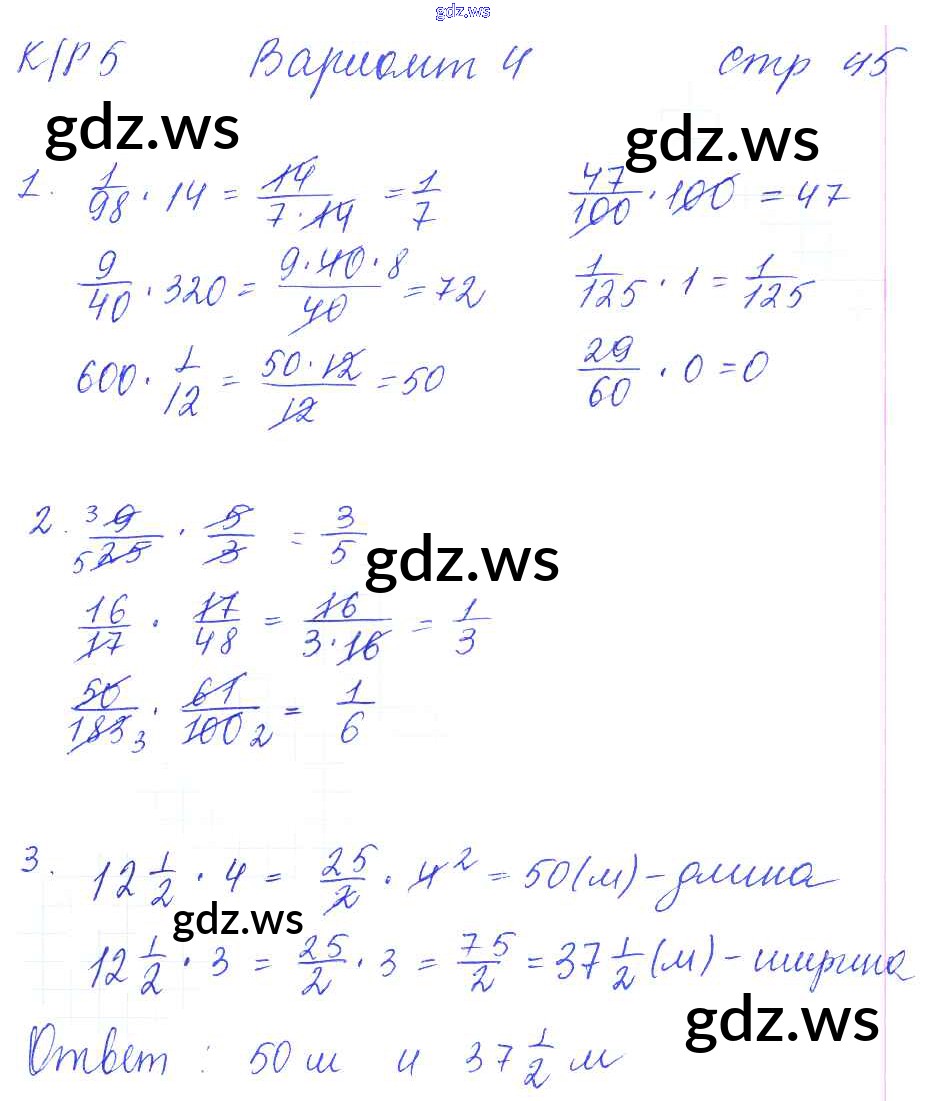 gdz.ws
К/Р 5 Вариант 4 стр 45
gdz.ws gdz.ws
1. 1/98 · 14 = 14/(7·14) = 1/7 47/100 · 100 = 47
9/40 · 320 = (9·40·8)/40 = 72 1/125 · 1 = 1/125
600 · 1/12 = (50·12)/12 = 50 29/60 · 0 = 0
2. 3 9/5 25 · 5/3 = 3/5
gdz.ws
16/17 · 17/48 = 16/(3·16) = 1/3
50/183 3 · 61/100 2 = 1/6
3. 12 1/2 · 4 = 25/2 · 4 2 = 50 (м) - длина
gdz.ws
12 1/2 · 3 = 25/2 · 3 = 75/2 = 37 1/2 (м) - ширина
gdz.ws
Ответ : 50 м и 37 1/2 м